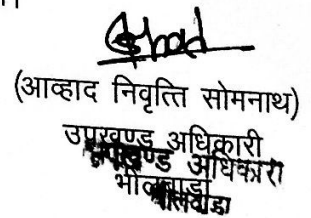 (आव्हाद निवृत्ति सोमनाथ)
उपखण्ड अधिकारी
उपखण्ड अधिकारी
भीलवाड़ा
भीलवाड़ा